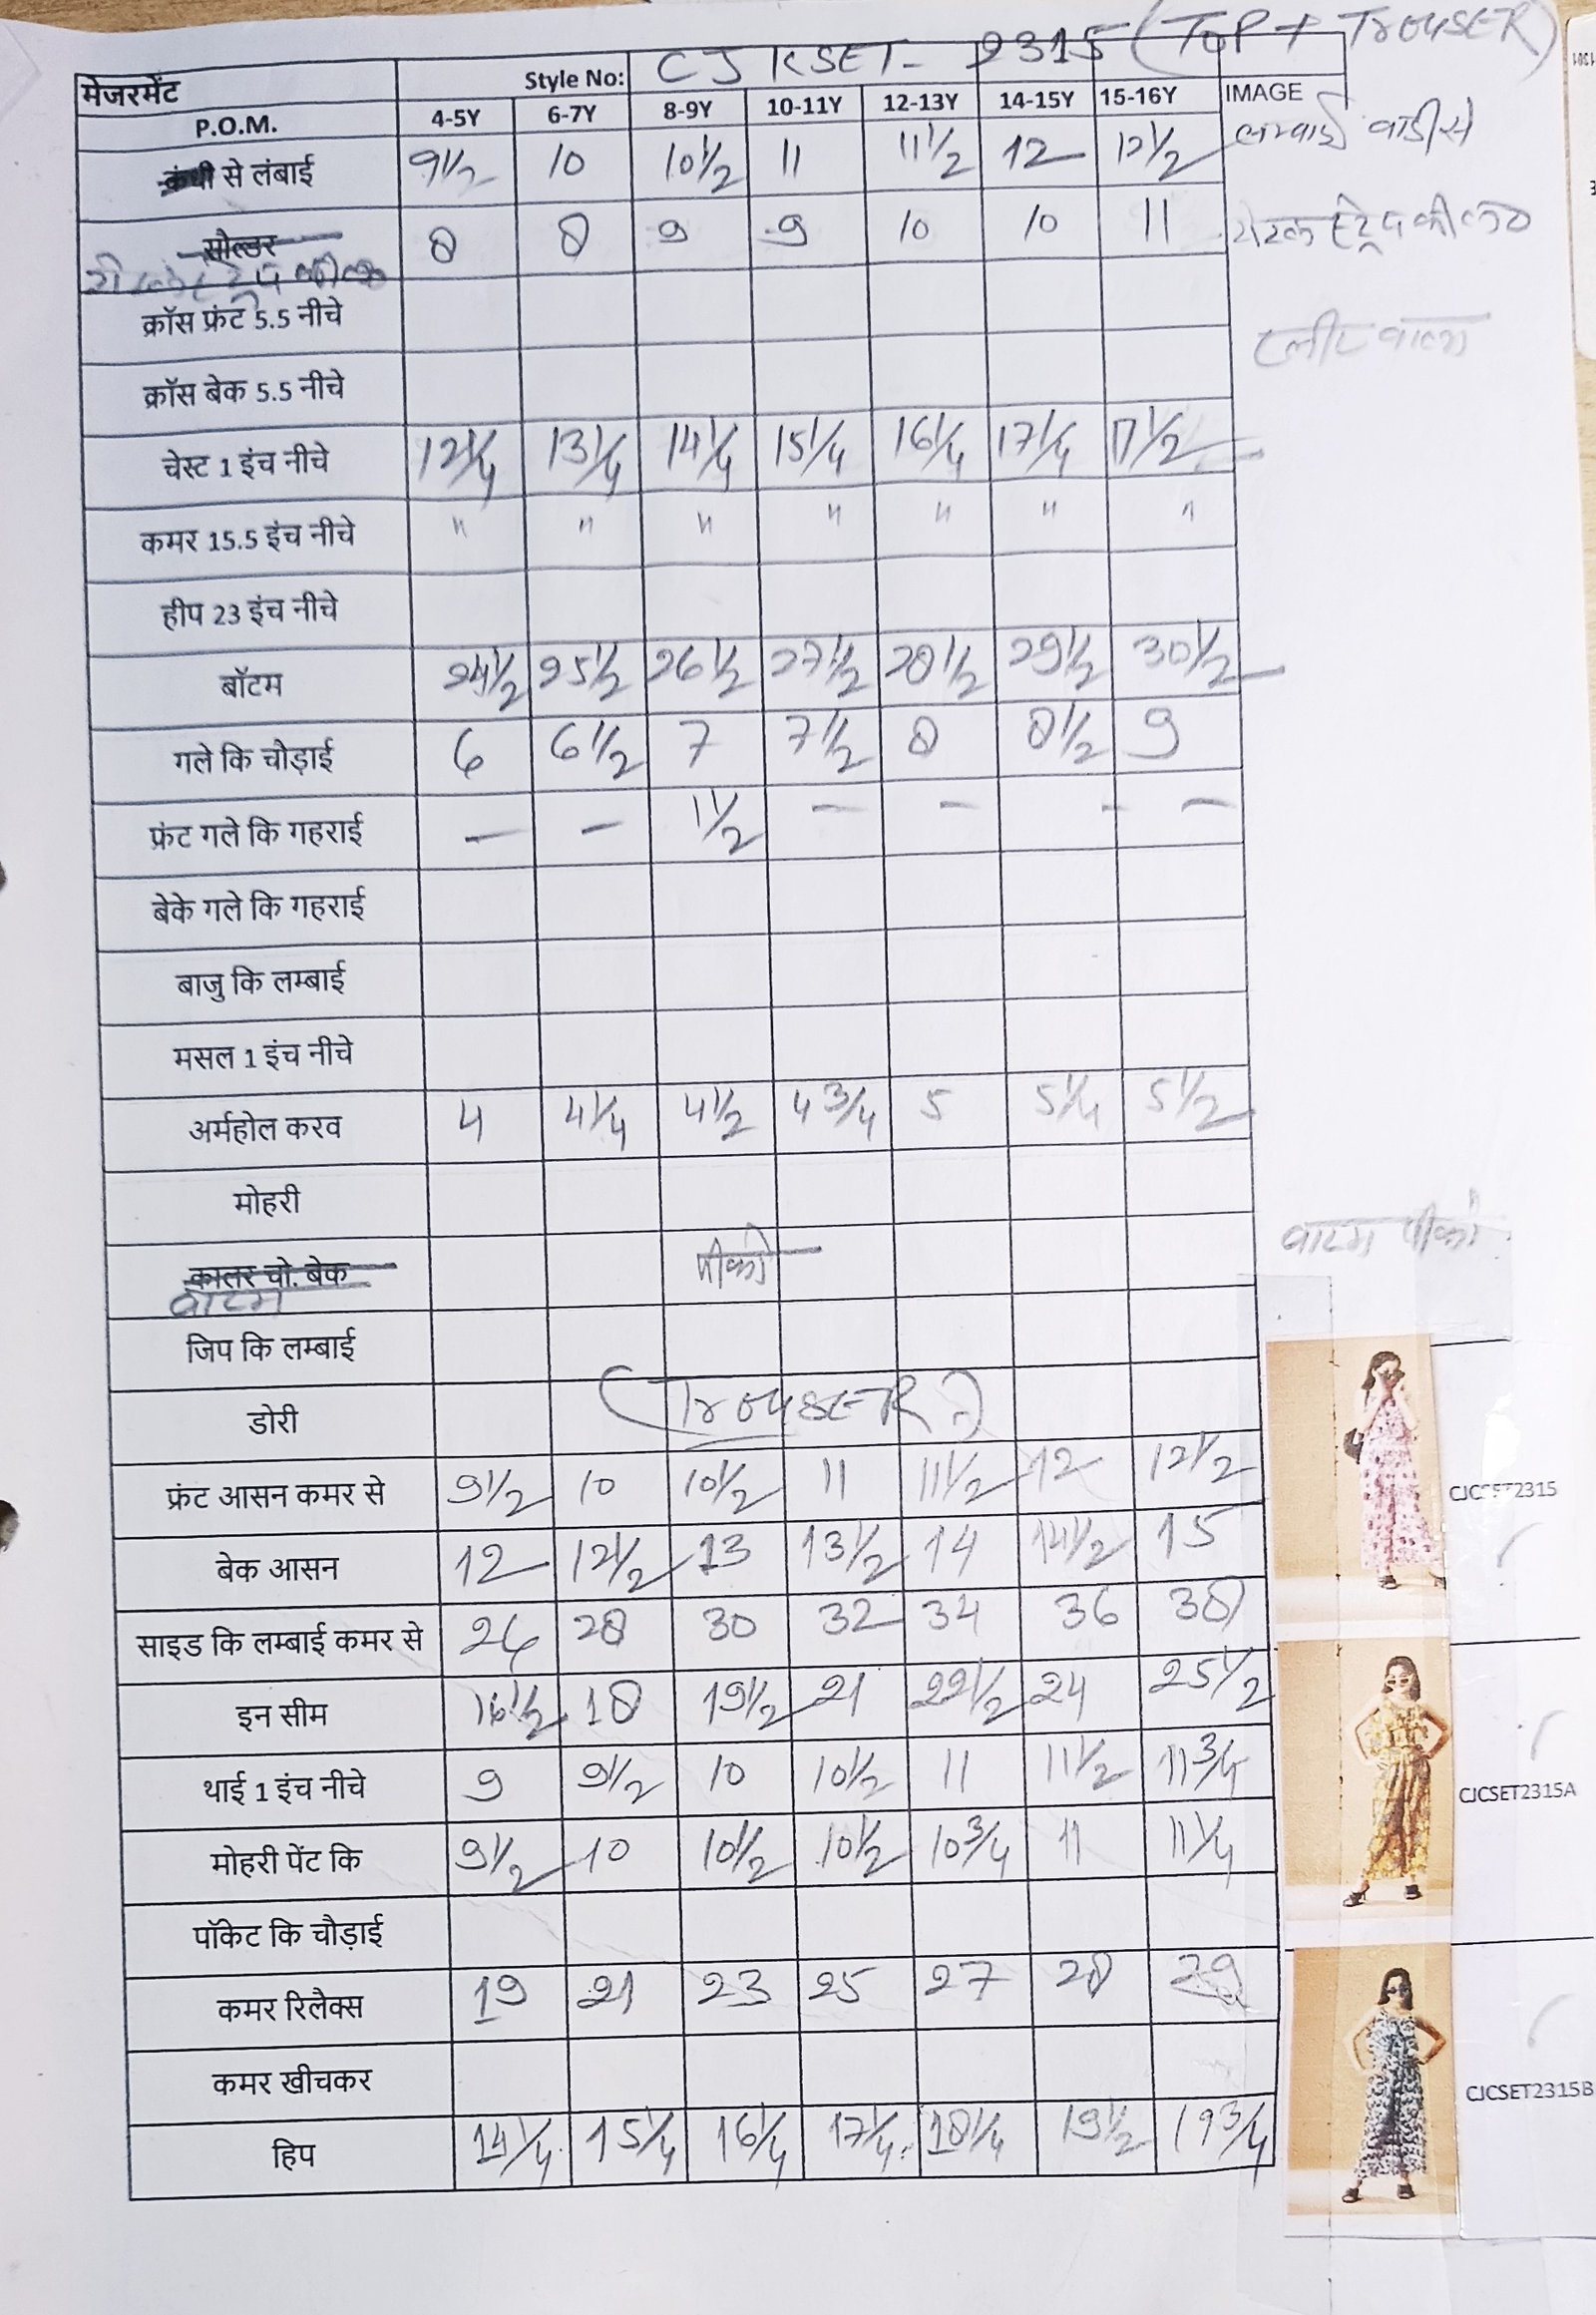 CJ KSET- 2315 (TOP + TrOUSER)
मेजरमेंट Style No:
P.O.M. 4-5Y 6-7Y 8-9Y 10-11Y 12-13Y 14-15Y 15-16Y IMAGE
लम्बाई बाडी से
कंधी से लंबाई 9 1/2 10 10 1/2 11 11 1/2 12 12 1/2
सोल्डर 8 8 9 9 10 10 11
क्रॉस फ्रंट 5.5 नीचे
क्रॉस बेक 5.5 नीचे
चेस्ट 1 इंच नीचे 12 1/4 13 1/4 14 1/4 15 1/4 16 1/4 17 1/4 17 1/2
कमर 15.5 इंच नीचे " " " " " " "
हीप 23 इंच नीचे
बॉटम 24 1/2 25 1/2 26 1/2 27 1/2 28 1/2 29 1/2 30 1/2
गले कि चौड़ाई 6 6 1/2 7 7 1/2 8 8 1/2 9
फ्रंट गले कि गहराई - - 1 1/2 - - - -
बेके गले कि गहराई
बाजु कि लम्बाई
मसल 1 इंच नीचे
अर्महोल करव 4 4 1/4 4 1/2 4 3/4 5 5 1/4 5 1/2
मोहरी
बाटम पीको
कालर चो. बेक पीको
बाटम
जिप कि लम्बाई
(TrOUSER)
डोरी
फ्रंट आसन कमर से 9 1/2 10 10 1/2 11 11 1/2 12 12 1/2
बेक आसन 12 12 1/2 13 13 1/2 14 14 1/2 15
साइड कि लम्बाई कमर से 26 28 30 32 34 36 38
इन सीम 16 1/2 18 19 1/2 21 22 1/2 24 25 1/2
थाई 1 इंच नीचे 9 9 1/2 10 10 1/2 11 11 1/2 11 3/4
मोहरी पेंट कि 9 1/2 10 10 1/2 10 1/2 10 3/4 11 11 1/4
पॉकेट कि चौड़ाई
कमर रिलैक्स 19 21 23 25 27 28 29
कमर खीचकर
हिप 14 1/4 15 1/4 16 1/4 17 1/4 18 1/4 19 1/2 19 3/4
CJCSET2315
CJCSET2315A
CJCSET2315B